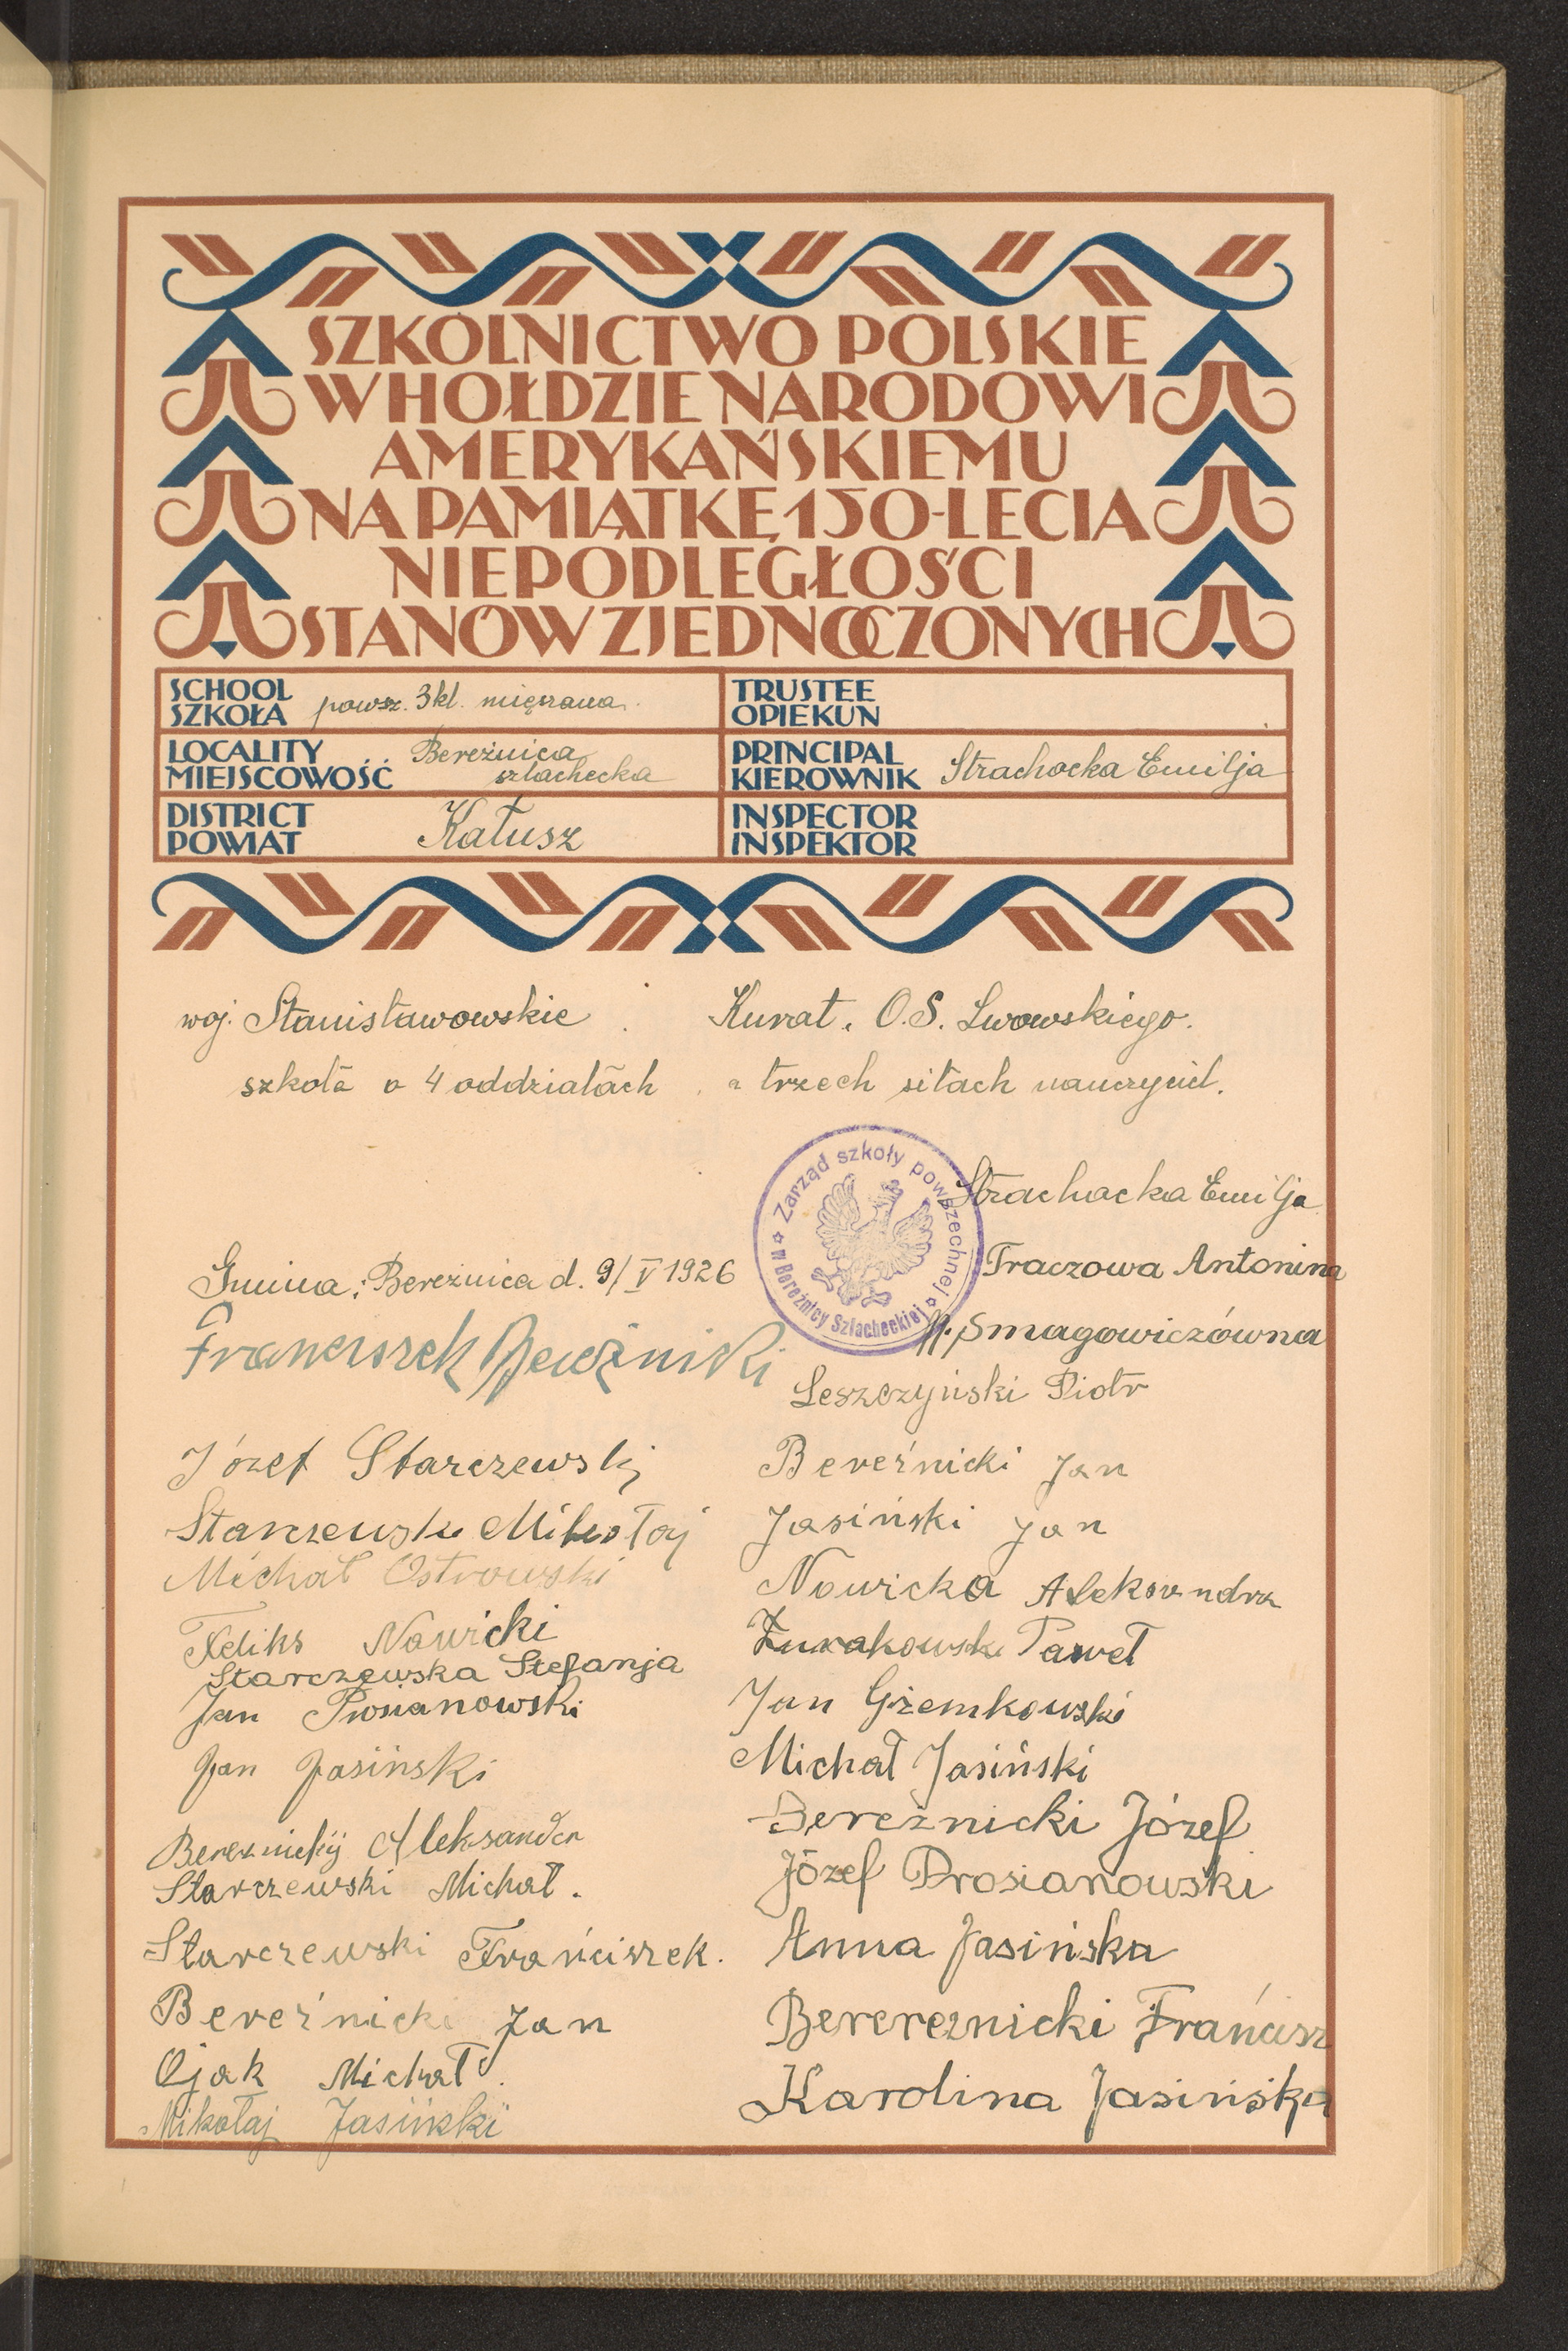 SZKOLNICTWO POLSKIE
W HOŁDZIE NARODOWI
AMERYKAŃSKIEMU
NA PAMIĄTKĘ 150-LECIA
NIEPODLEGŁOŚCI
STANÓW ZJEDNOCZONYCH
SCHOOL
SZKOŁA powsz. 3kl. mięszana.
TRUSTEE
OPIEKUN
LOCALITY
MIEJSCOWOŚĆ Bereżnica szlachecka
PRINCIPAL
KIEROWNIK Strachocka Emilja
DISTRICT
POWIAT Kałusz
INSPECTOR
INSPEKTOR
woj. Stanisławowskie Kurat. O.S. Lwowskiego.
szkoła o 4 oddziałach trzech siłach nauczyciel.
Zarząd szkoły powszechnej
w Bereżnicy Szlacheckiej
Strachocka Emilja
Gmina: Bereżnica d. 9/V 1926
Traczowa Antonina
Smagowiczówna
Franciszek
Leszczyński Piotr
Józef Starczewski
Bereźnicki Jan
Starczewski Mikołaj
Jasiński Jan
Michał Ostrowski
Nowicka Aleksandra
Feliks Nowicki
Żurakowski Paweł
Starczewska Stefanja
Jan
Jan Grzemkowski
Jan Jasiński
Michał Jasiński
Bereżnicki Józef
Aleksander
Józef Prosianowski
Starczewski Michał.
Starczewski Frańciszek.
Anna Jasińska
Bereźnicki Jan
Berereznicki Frańcisz
Ojak Michał.
Karolina Jasińska
Mikołaj Jasiński